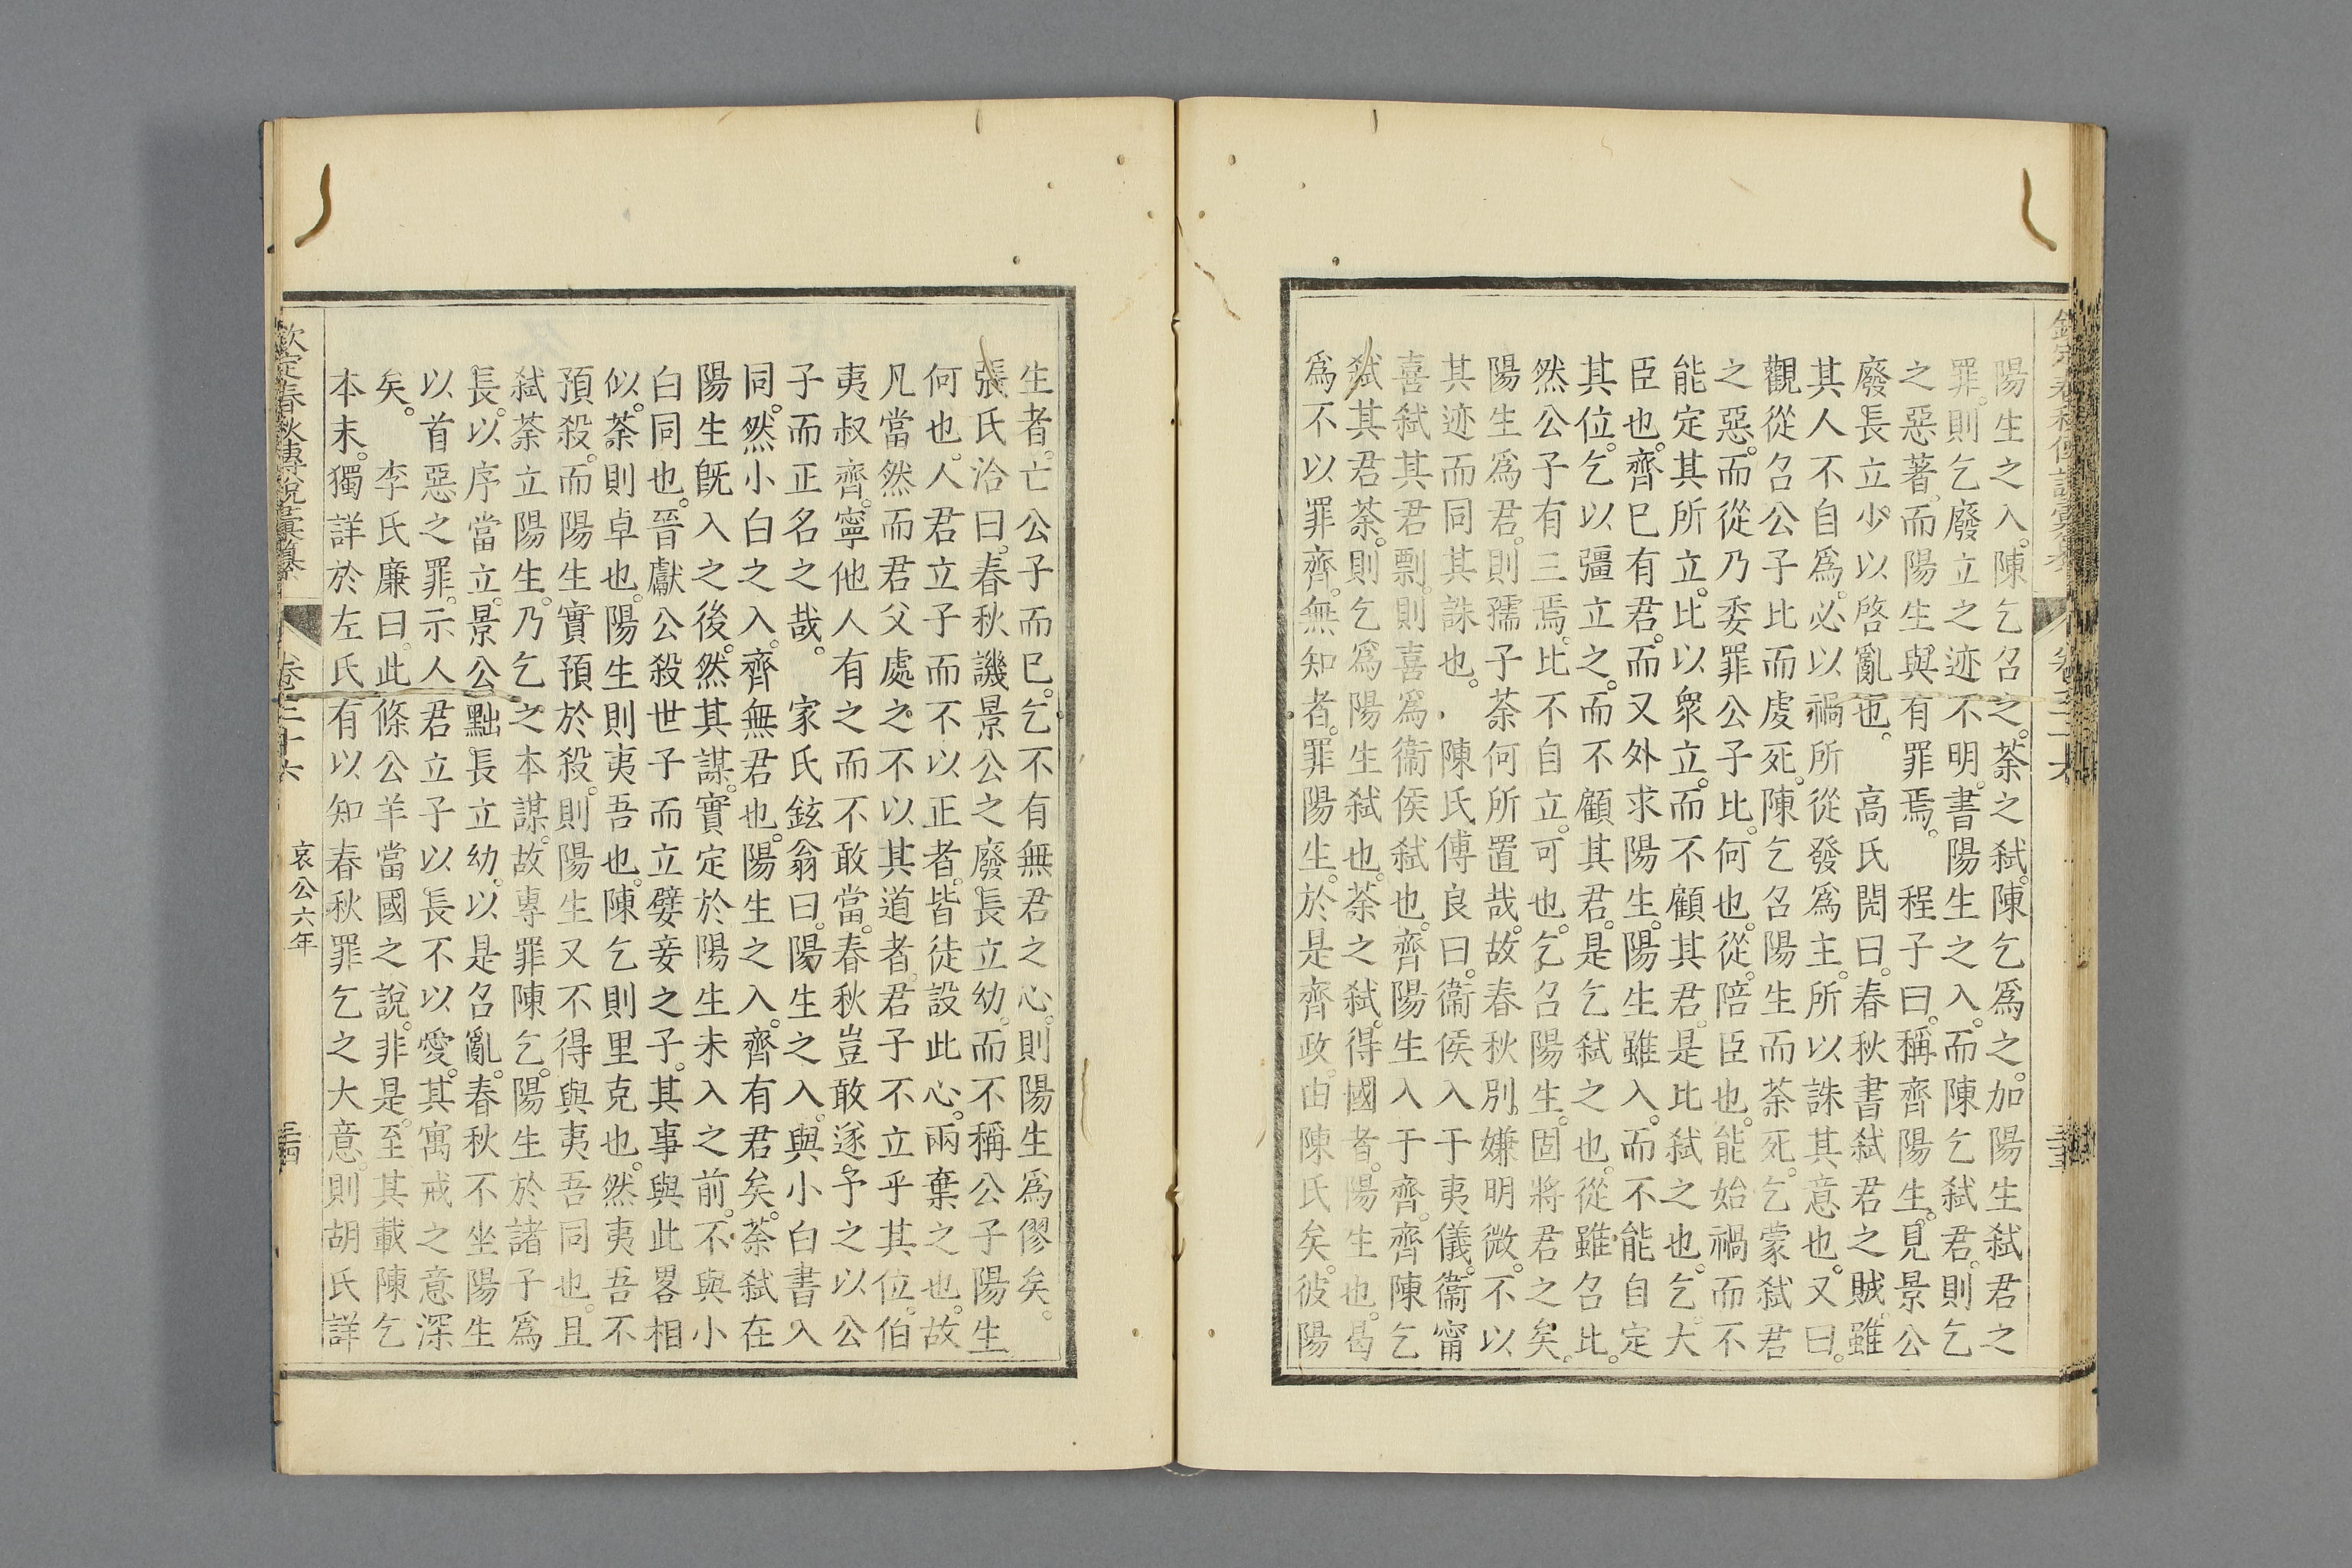 陽生之入。陳乞召之。荼之弑。陳乞爲之。加陽生弑君之
罪。則乞廢立之迹不明。書陽生之入。而陳乞弑君。則乞
之惡著。而陽生與有罪焉。　程子曰。稱齊陽生。見景公
廢長立少。以啓亂也。　高氏閌曰。春秋書弑君之賊。雖
其人不自爲。必以禍所從發爲主。所以誅其意也。又曰。
觀從召公子比而虔死。陳乞召陽生而荼死。乞蒙弑君
之惡。而從乃委罪公子比。何也。從。陪臣也。能始禍而不
能定其所立。比以衆立。而不顧其君。是比弑之也。乞。大
臣也。齊已有君。而又外求陽生。陽生雖入。而不能自定
其位。乞以彊立之。而不顧其君。是乞弑之也。從雖召比。
然公子有三焉。比不自立。可也。乞召陽生。固將君之矣。
陽生爲君。則孺子荼何所置哉。故春秋別嫌明微。不以
其迹而同其誅也。　陳氏傅良曰。衞侯入于夷儀。衞甯
喜弑其君剽。則喜爲衞侯弑也。齊陽生入于齊。齊陳乞
弑其君荼。則乞爲陽生弑也。荼之弑。得國者。陽生也。曷
爲不以罪齊。無知者。罪陽生。於是齊政由陳氏矣。彼陽
生者。亡公子而已。乞不有無君之心。則陽生爲僇矣。
張氏洽曰。春秋譏景公之廢長立幼。而不稱公子陽生
何也。人君立子而不以正者。皆徒設此心。兩棄之也。故
凡當然而君父處之不以其道者。君子不立乎其位。伯
夷叔齊。寧他人有之而不敢當。春秋豈敢遂予之以公
子而正名之哉。　家氏鉉翁曰。陽生之入。與小白書入
同。然小白之入。齊無君也。陽生之入。齊有君矣。荼弑在
陽生旣入之後。然其謀。實定於陽生未入之前。不與小
白同也。晉獻公殺世子而立嬖妾之子。其事與此畧相
似。荼則卓也。陽生則夷吾也。陳乞則里克也。然夷吾不
預殺。而陽生實預於殺。則陽生又不得與夷吾同也。且
弑荼立陽生。乃乞之本謀。故專罪陳乞。陽生於諸子爲
長。以序當立。景公黜長立幼。以是召亂。春秋不坐陽生
以首惡之罪。示人君立子以長不以愛。其寓戒之意深
矣。　李氏廉曰。此條公羊當國之說。非是。至其載陳乞
本末。獨詳於左氏。有以知春秋罪乞之大意。則胡氏詳
欽定春秋傳說彙纂　卷三十六　哀公六年　三十四